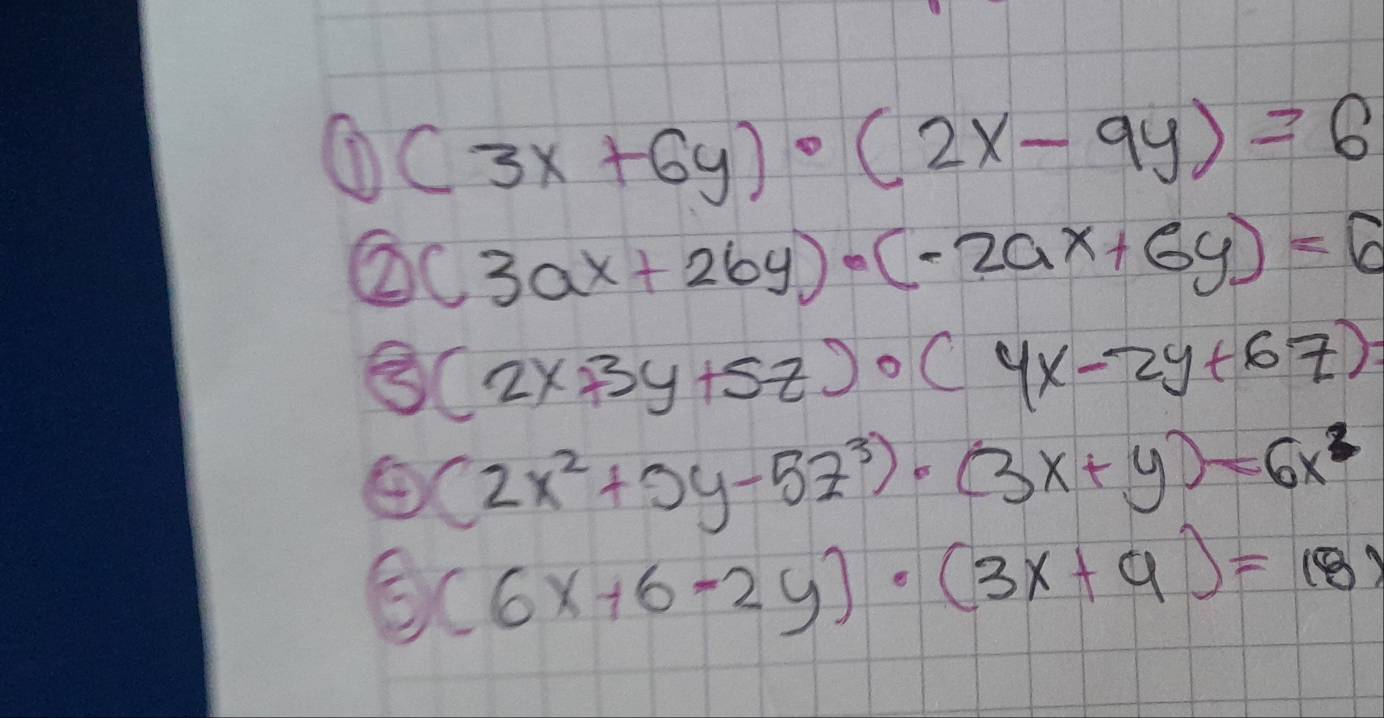 ① (3x + 6y) • (2x - 9y) = 6
② (3ax + 2by) • (-2ax + 6y) = 6
③ (2x + 3y + 5z) • (4x - 2y + 6z) =
④ (2x² + 3y - 5z³) • (3x + y) = 6x³
⑤ (6x + 6 - 2y) • (3x + 9) = 18